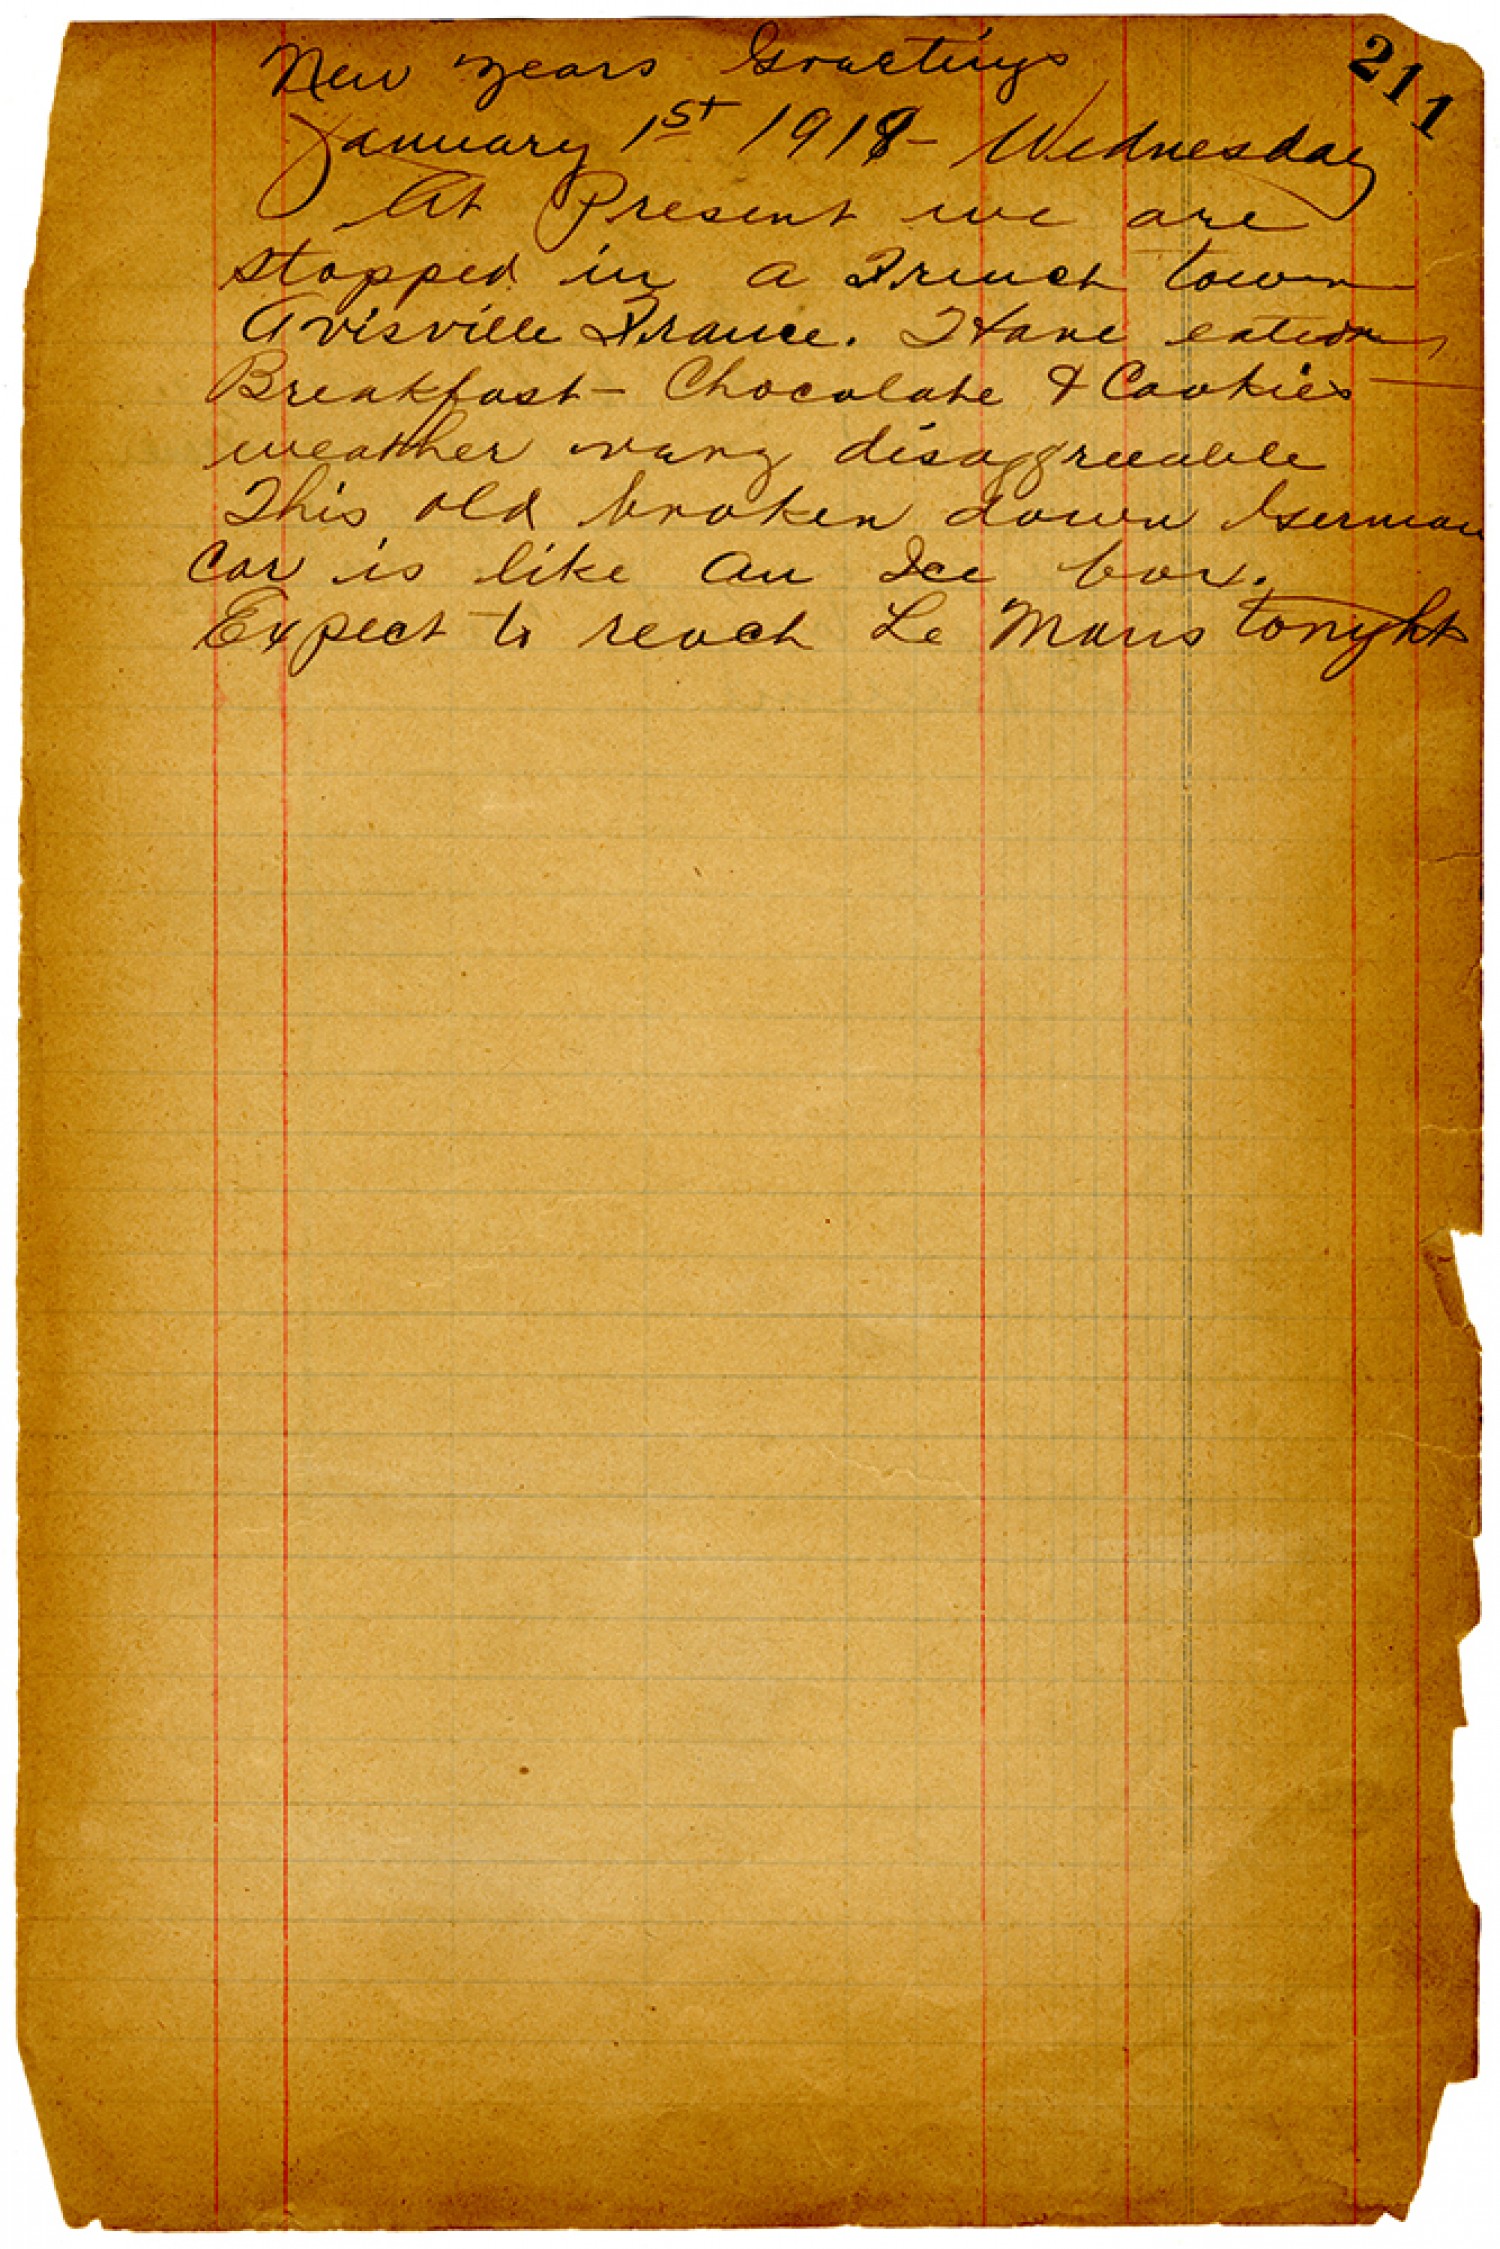 211
New years Greetings
January 1st 1918 - Wednesday
At Present we are
stopped in a French town
Avisville France. I Have eaten
Breakfast - Chocolate & Cookies -
weather very disaggreeable
This old broken down German
Car is like an Ice box.
Expect to reach Le Mans tonyght